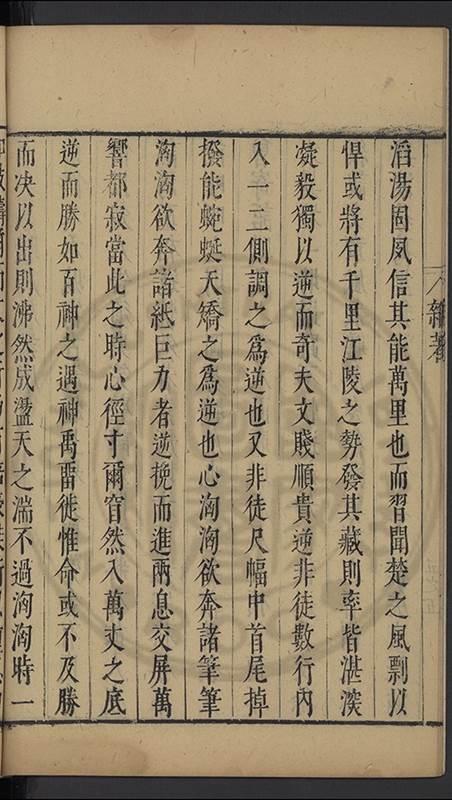 雜著
滔湯固夙信其能萬里也而習聞楚之風剽以
悍或將有千里江陵之勢發其藏則率皆湛深
凝毅獨以逆而奇夫文賤順貴逆非徒數行內
入一二側調之爲逆也又非徒尺幅中首尾掉
撥能蜿蜒夭矯之爲逆也心洶洶欲奔諸筆筆
洶洶欲奔諸紙巨力者逆挽而進兩息交屏萬
響都寂當此之時心徑寸爾窅然入萬丈之底
逆而勝如百神之遇神禹畱徙惟命或不及勝
而决以出則沸然成盪天之湍不過洶洶時一